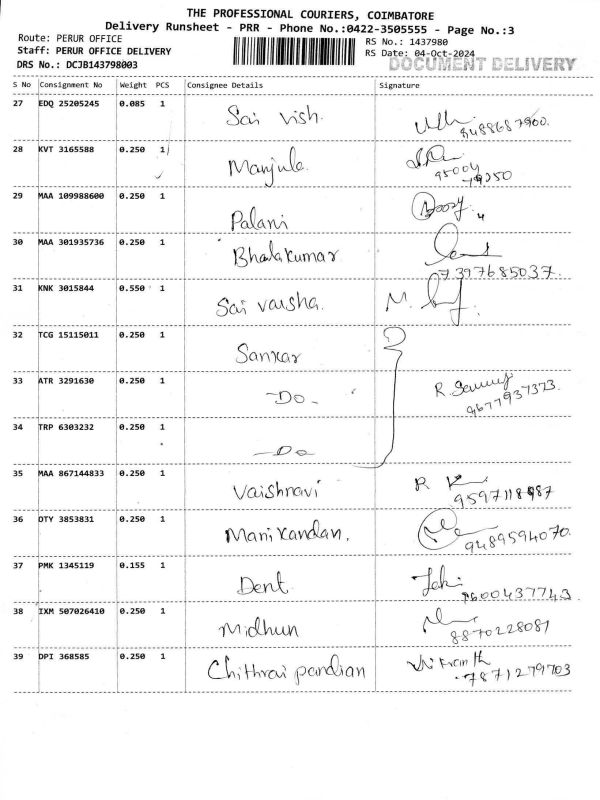 THE PROFESSIONAL COURIERS, COIMBATORE
Delivery Runsheet - PRR - Phone No.:0422-3505555 - Page No.:3
Route: PERUR OFFICE
RS No.: 1437980
Staff: PERUR OFFICE DELIVERY
RS Date: 04-Oct-2024
DRS No.: DCJB143798003
DOCUMENT DELIVERY
S No Consignment No Weight PCS Consignee Details Signature
27 EDQ 25205245 0.085 1 Sai vish.
28 KVT 3165588 0.250 1 Manjula
95004
79250
29 MAA 109988600 0.250 1 Palani
30 MAA 301935736 0.250 1 Bhalakumar
7397685037.
31 KNK 3015844 0.550 1 Sai vaisha. M.
32 TCG 15115011 0.250 1 Sankar
33 ATR 3291630 0.250 1 -Do- R.
9677937373
34 TRP 6303232 0.250 1 -Do
35 MAA 867144833 0.250 1 Vaishnavi R
36 OTY 3853831 0.250 1 Manikandan.
9489594070.
37 PMK 1345119 0.155 1 Dent
9600437743
38 IXM 507026410 0.250 1 Midhun
8870228081
39 DPI 368585 0.250 1 Chithrai pandian
7871279703